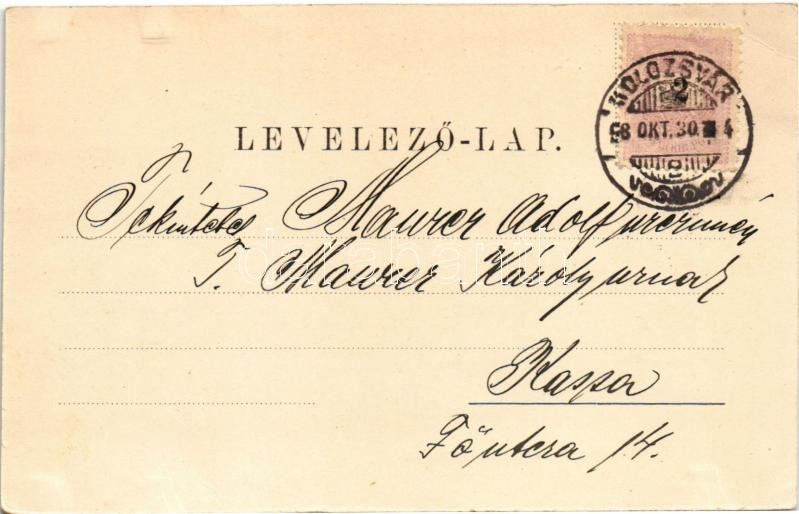 KOLOZSVÁR
2
98 OKT. 30. 4
LEVELEZŐ-LAP.
Tekintetes Maurer Adolf úr czímén
T. Maurer Károly urnak
Kassa
Fő utcza 14.